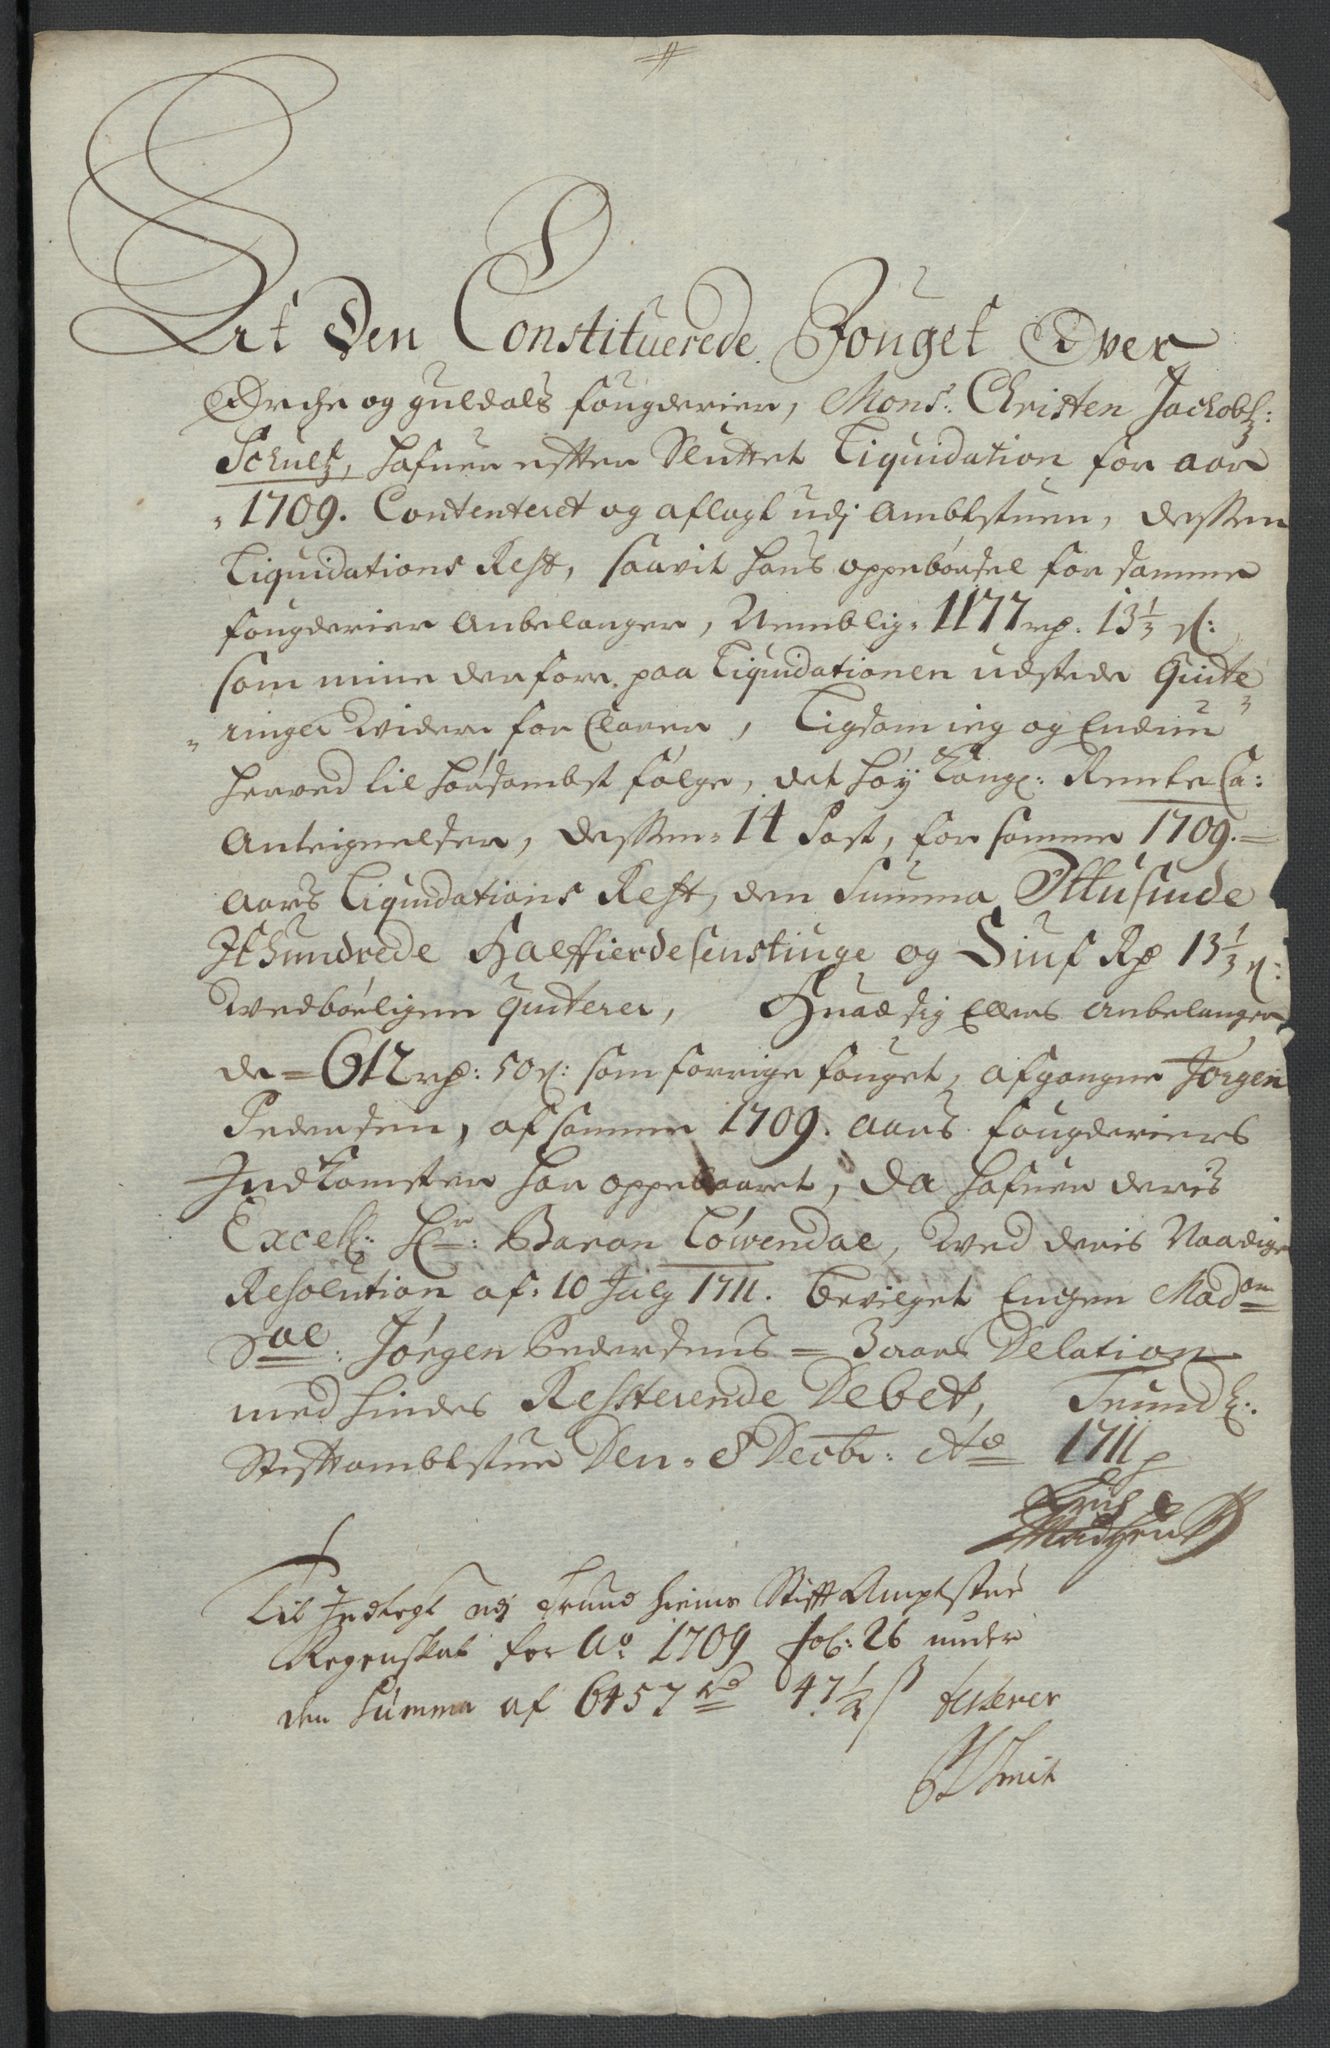 At Den Constituerede Fouget Over
Orche og Guldals fougderier, Mons: Christen Jackobs:
Schult, hafuer effter Sluttet Liquidation for aar
1709. Contenteret og aflagt udj Ambtstuen, dessen
Liquidations Rest, saavit hans oppebørsel for samme
fougderier Anbelanger, Nemblig. 1177 rp. 13⅓ s:
som mine derfore paa Liquidationen udstede Quite
ringer widere forclarer, Ligsom ieg og Endnu
herved til hørsambst følge, det høy Kongl: Rente Ca:
Anteignelser, dessen 14 Post, for samme 1709.
aars Liquidations Rest, den Summa Ittusinde
Ithundrede Halffierdesenstiuge og Siuf Rp 13⅓ s:
wedbørligen Quiterer, Huad sig Ellers anbelanger
de 612 rp: 50 s: som forrige fouget, afgangne Jørgen
Pedersen, af samme 1709. aars fougderiers
Indkomster har oppebaaret, da hafuer deris
Excell: Hr: Baron Løwendal, wed deris Naadige
Resolution af 10 July 1711. bevilget Enchen Madam
Sal: Jørgen Pedersens 3 aars Delation
med hindes Resterende Debet, Trundh:
Stifftambtstue Den 8 Decbr: Ao 1711
Erich
Madtzen
Lit Indlegt udj Trundhiems Stifft Amptstue
Regenskab for Ao 1709 fol: 26 under
den Summa af 6457 rd 47½ s testerer
Smit